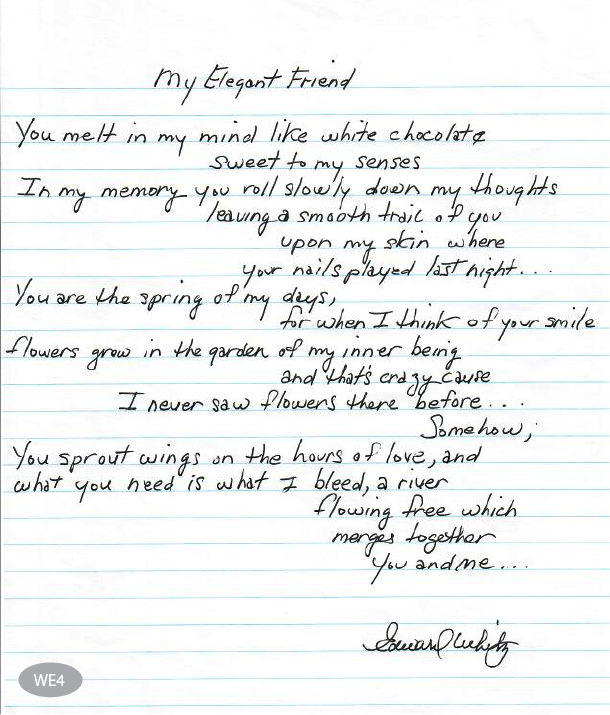 My Elegant Friend
You melt in my mind like white chocolate
sweet to my senses
In my memory you roll slowly down my thoughts
leaving a smooth trail of you
upon my skin where
your nails played last night...
You are the spring of my days,
for when I think of your smile
flowers grow in the garden of my inner being
and that's crazy cause
I never saw flowers there before...
Somehow,
You sprout wings on the hours of love, and
what you need is what I bleed, a river
flowing free which
merges together
You and me...
WE4